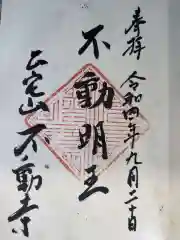 奉拝
令和四年九月二十日
不動明王
正宝山不動寺